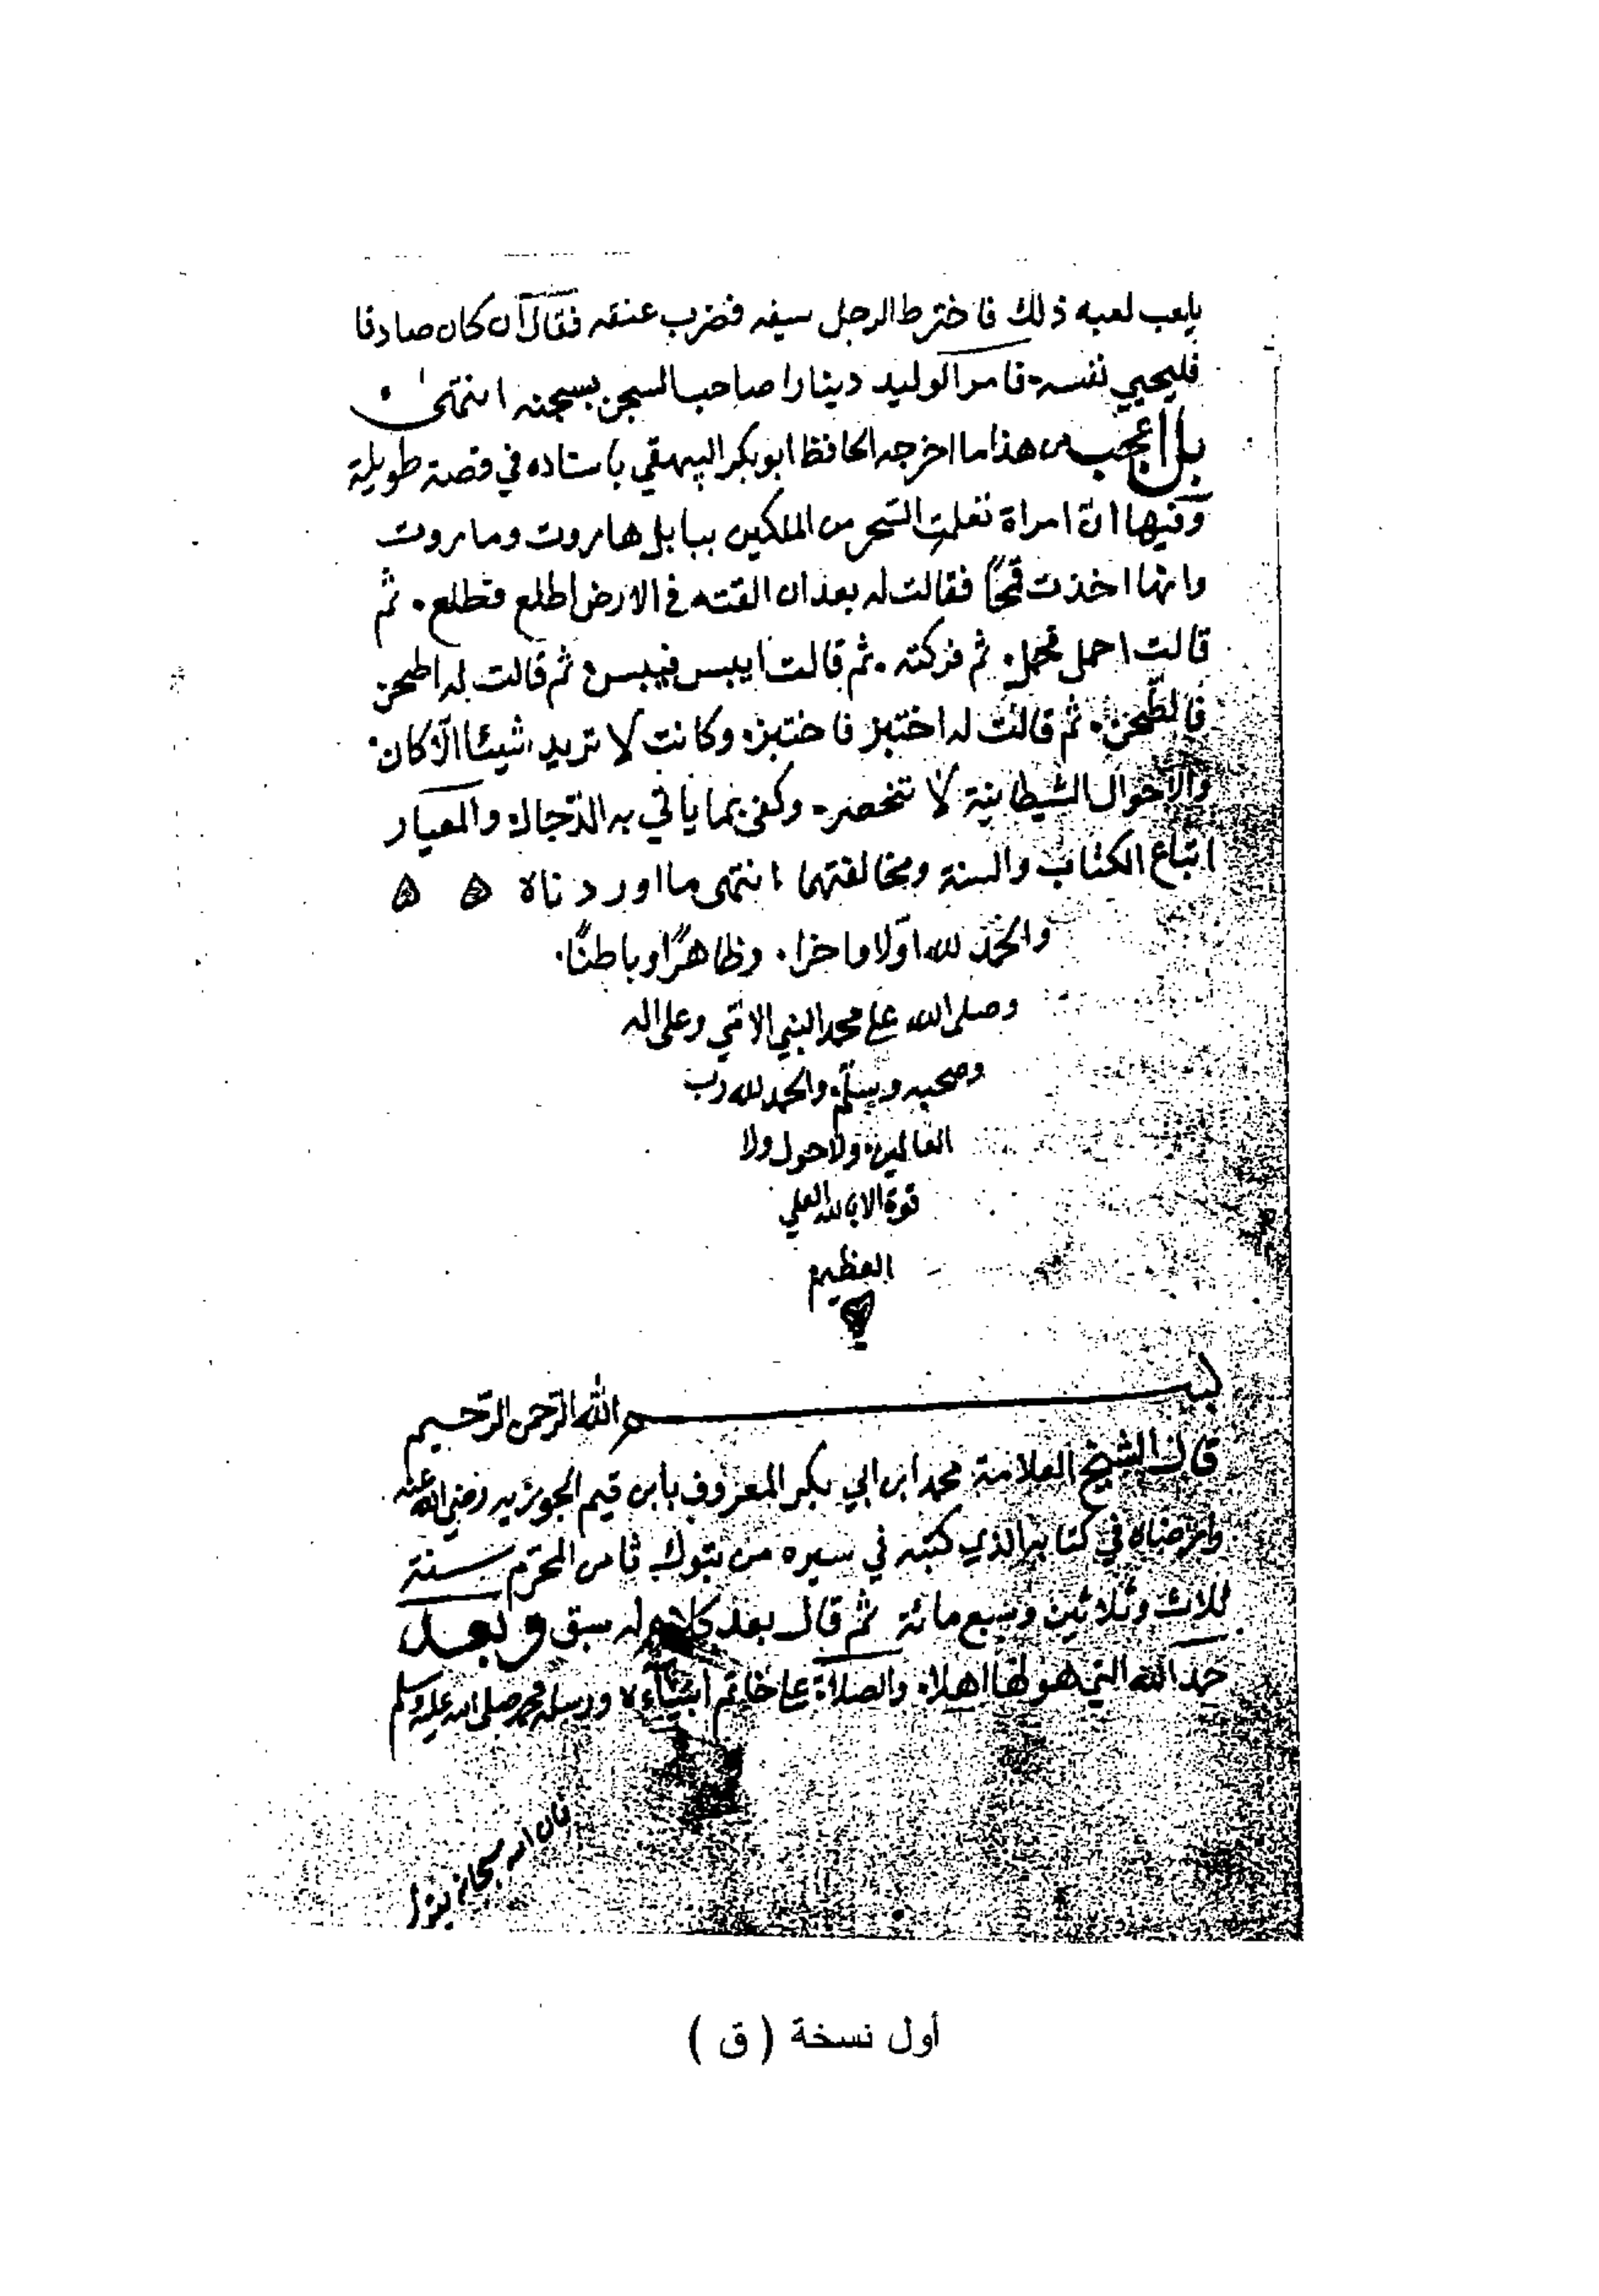 يلعب لعبه ذلك فاخترط الرجل سيفه فضرب عنقه فقال ان كان صادقا
فليحيي نفسه. فامر الوليد دينارا صاحب السجن بسجنه انتهى
بل اعجب من هذا ما اخرجه الحافظ ابو بكر البيهقي باسناده في قصة طويلة
وفيها ان امراة تعلمت السحر من الملكين ببابل هاروت وماروت
وانها اخذت قمحًا فقالت له بعد ان القته في الارض اطلع فطلع. ثم
قالت احمل فحمل. ثم فركته. ثم قالت ايبس فيبس. ثم قالت له اطحن
فانطحن. ثم قالت له اختبز فاختبز. وكانت لا تريد شيئا الّا كان.
والاحوال الشيطانية لا تنحصر. وكفى بما ياتي به الدّجال. والمعيار
اتباع الكتاب والسنة ومخالفتهما انتهى ما اوردناه ۵ ۵
والحمد لله اوّلا واخرا. وظاهرًا وباطنًا.
وصلى الله على محمد النبي الامّي وعلى اله
وصحبه وسلّم. والحمد لله رب
العالمين. ولا حول ولا
قوة الا بالله العلي
العظيم
بسم الله الرّحمن الرّحيم
قال الشيخ العلامة محمد ابن ابي بكر المعروف بابن قيم الجوزيه رضي الله عنه
وارضاه في كتابه الذي كتبه في سيره من تبوك ثامن المحرّم سنة
ثلاث وثلاثين وسبع مائة ثم قال بعد كلام له سبق وبعد
حمد الله التي هو لها اهلا. والصلاة على خاتم انبياءه ورسله محمد صلى الله عليه وسلم
فان الله سبحانه يقول
أول نسخة ( ق )